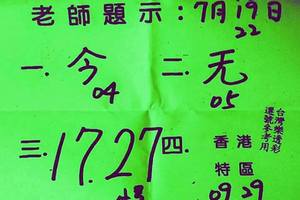 老師題示:7月19日
22
一.今
04
二.无
05
三.17.27
四.香港
特區
09 29
台灣樂透彩
選號參考用